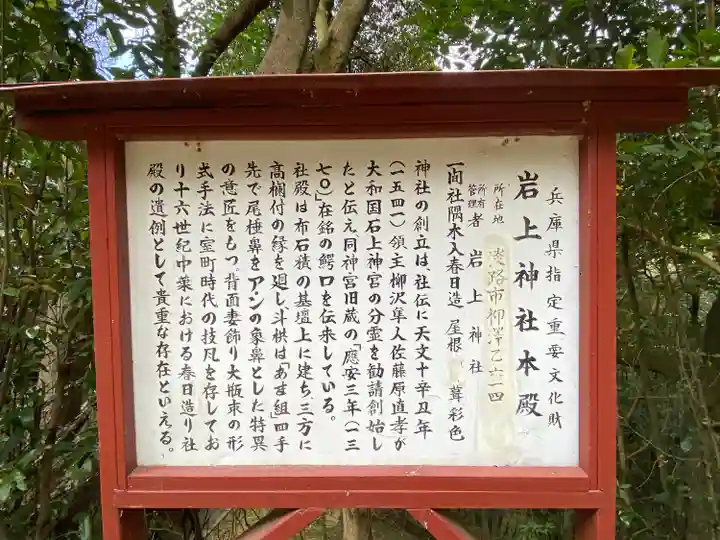 兵庫県指定重要文化財
岩上神社本殿
所在地 淡路市柳澤乙六一四
所有管理者 岩上神社
一間社隅木入春日造 屋根 葺彩色
神社の創立は、社伝に天文十辛丑年
(一五四一)領主柳沢隼人佐藤原直孝が
大和国石上神宮の分霊を勧請創始し
たと伝え、同神宮旧蔵の「應安三年(一三
七〇)」在銘の鰐口を伝来している。
社殿は布石積の基壇上に建ち、三方に
高欄付の縁を廻し、斗栱は「あま組」四手
先で尾棰鼻をアシの象鼻とした特異
の意匠をもつ。背面妻飾り大瓶束の形
式手法に室町時代の技凡を存してお
り十六世紀中葉における春日造り社
殿の遺例として貴重な存在といえる。